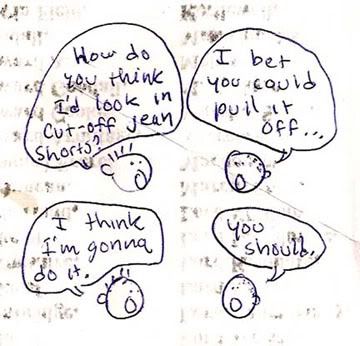 How do
you think
I'd look in
cut-off jean
shorts?
I bet
you could
pull it
off...
I think
I'm gonna
do it.
You
should.